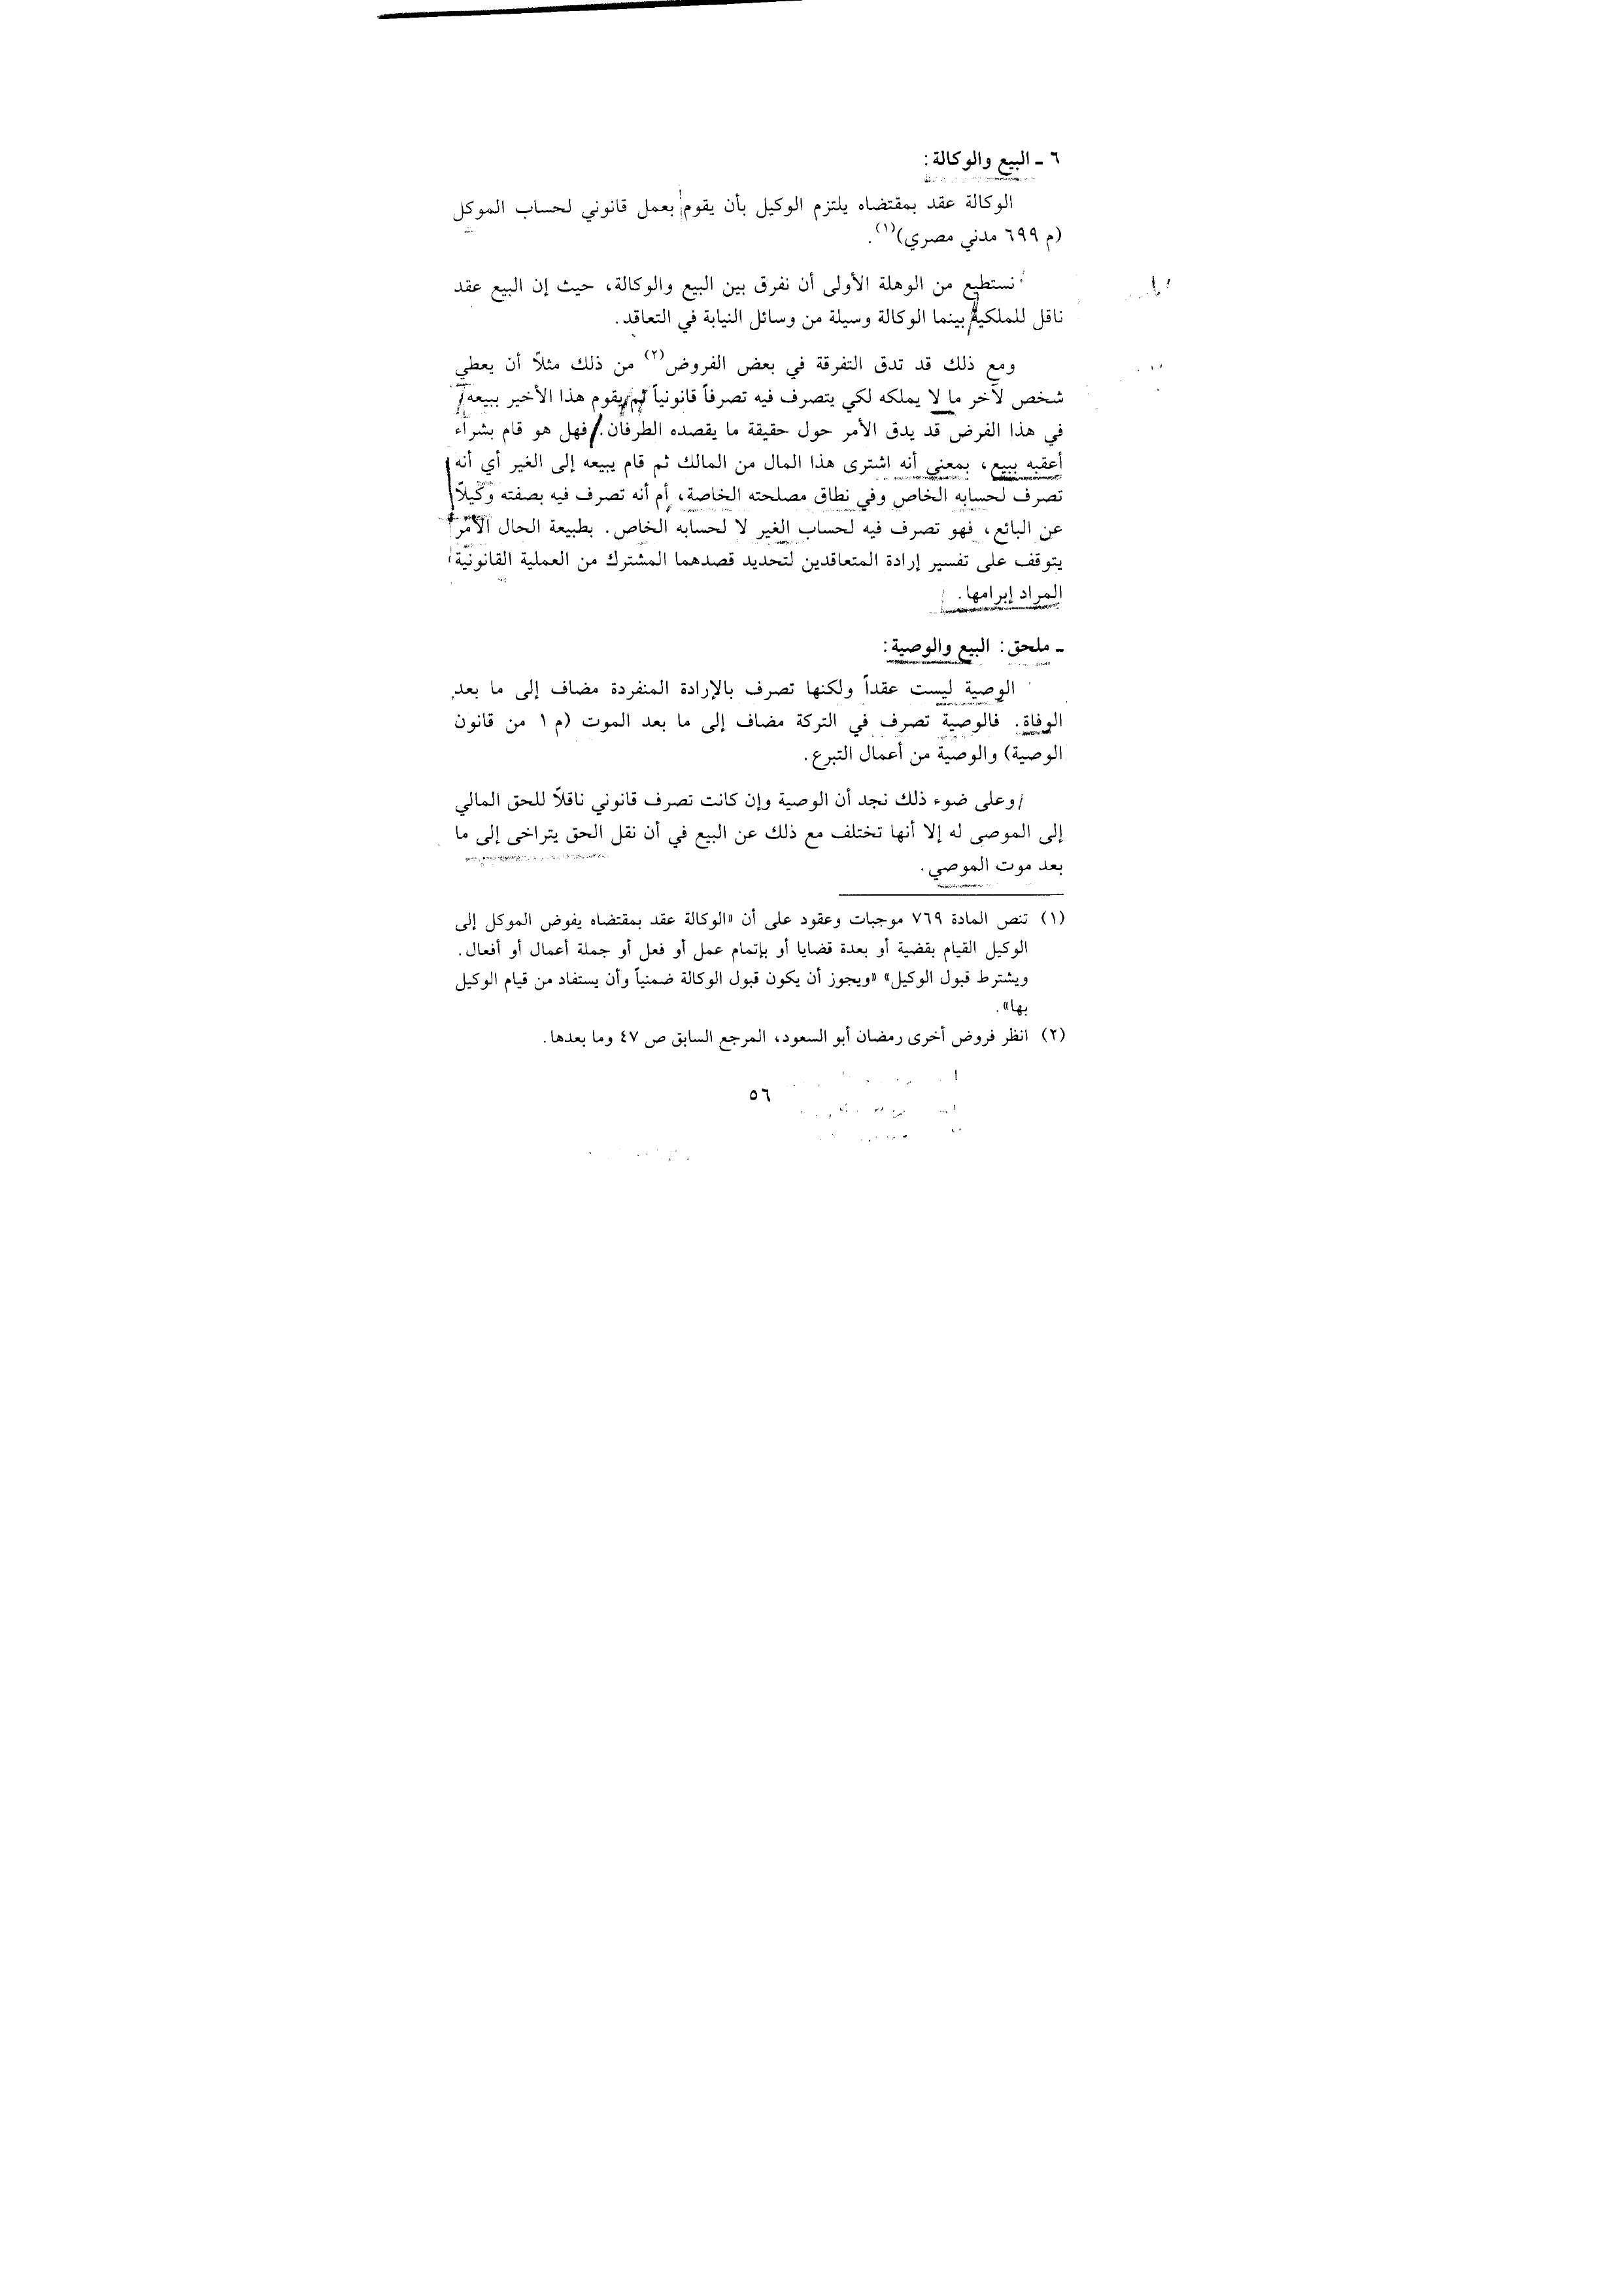 ٦ ـ البيع والوكالة:
الوكالة عقد بمقتضاه يلتزم الوكيل بأن يقوم بعمل قانوني لحساب الموكل
(م ٦٩٩ مدني مصري)(١).
نستطيع من الوهلة الأولى أن نفرق بين البيع والوكالة، حيث إن البيع عقد
ناقل للملكية بينما الوكالة وسيلة من وسائل النيابة في التعاقد.
ومع ذلك قد تدق التفرقة في بعض الفروض(٢) من ذلك مثلاً أن يعطي
شخص لآخر ما لا يملكه لكي يتصرف فيه تصرفاً قانونياً ثم يقوم هذا الأخير ببيعه
في هذا الفرض قد يدق الأمر حول حقيقة ما يقصده الطرفان. فهل هو قام بشراء
أعقبه ببيع، بمعنى أنه اشترى هذا المال من المالك ثم قام يبيعه إلى الغير أي أنه
تصرف لحسابه الخاص وفي نطاق مصلحته الخاصة، أم أنه تصرف فيه بصفته وكيلاً
عن البائع، فهو تصرف فيه لحساب الغير لا لحسابه الخاص. بطبيعة الحال الأمر
يتوقف على تفسير إرادة المتعاقدين لتحديد قصدهما المشترك من العملية القانونية
المراد إبرامها.
ـ ملحق: البيع والوصية:
الوصية ليست عقداً ولكنها تصرف بالإرادة المنفردة مضاف إلى ما بعد
الوفاة. فالوصية تصرف في التركة مضاف إلى ما بعد الموت (م ١ من قانون
الوصية) والوصية من أعمال التبرع.
وعلى ضوء ذلك نجد أن الوصية وإن كانت تصرف قانوني ناقلاً للحق المالي
إلى الموصى له إلا أنها تختلف مع ذلك عن البيع في أن نقل الحق يتراخى إلى ما
بعد موت الموصي.
(١) تنص المادة ٧٦٩ موجبات وعقود على أن «الوكالة عقد بمقتضاه يفوض الموكل إلى
الوكيل القيام بقضية أو بعدة قضايا أو بإتمام عمل أو فعل أو جملة أعمال أو أفعال.
ويشترط قبول الوكيل» «ويجوز أن يكون قبول الوكالة ضمنياً وأن يستفاد من قيام الوكيل
بها».
(٢) انظر فروض أخرى رمضان أبو السعود، المرجع السابق ص ٤٧ وما بعدها.
٥٦